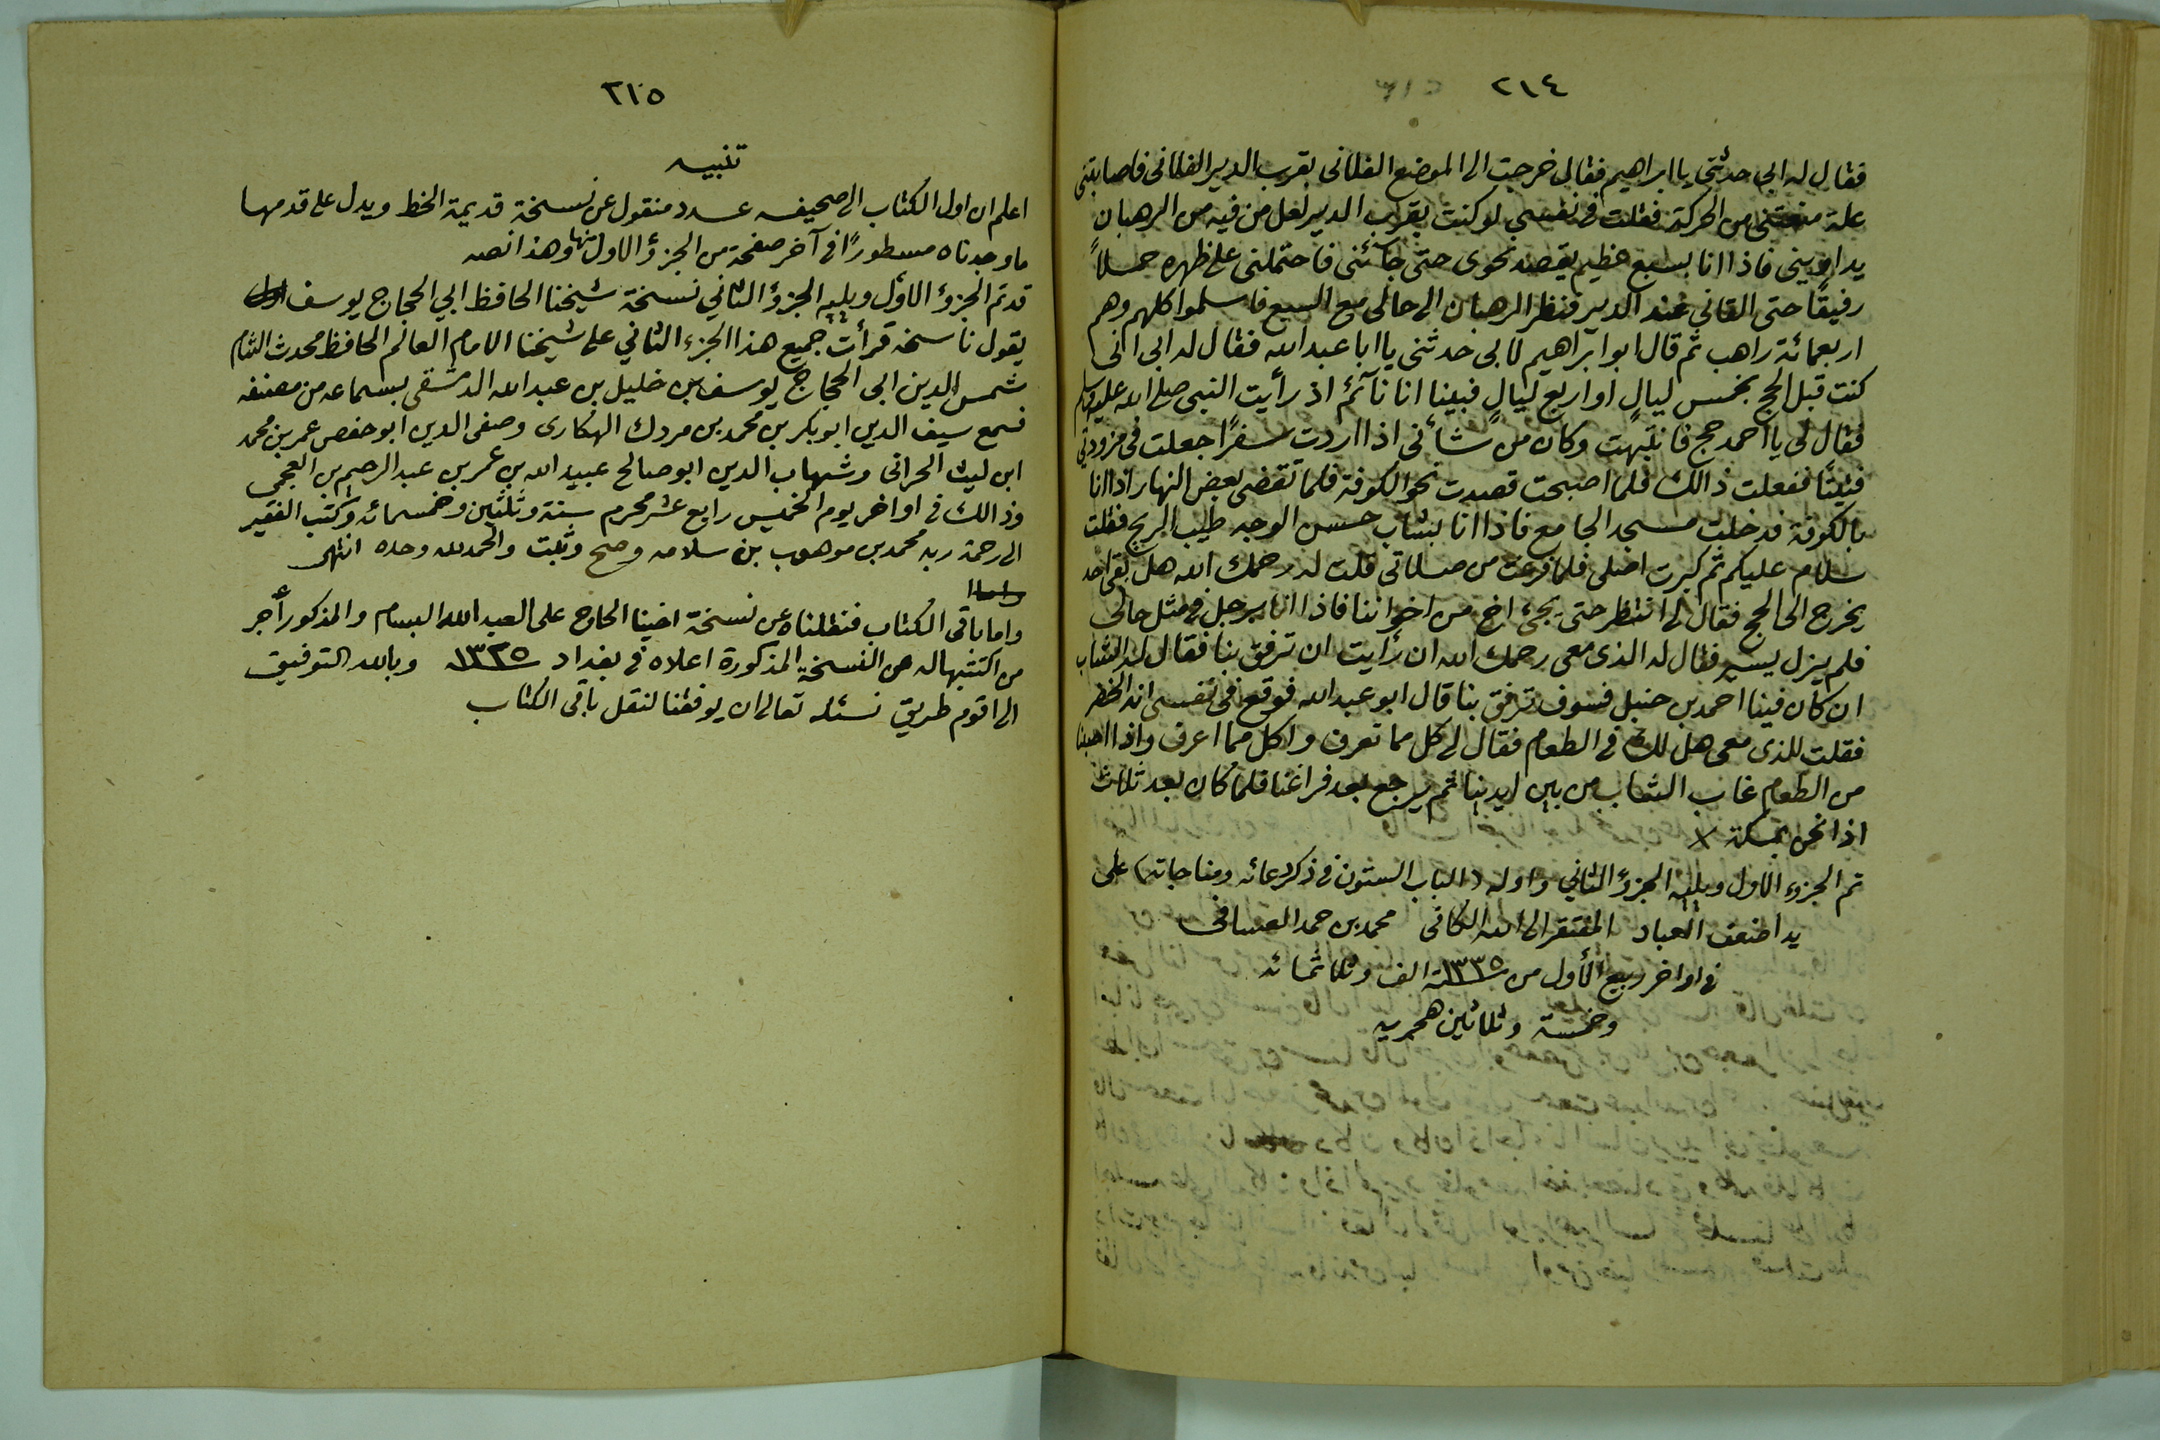 ٢١٤
فقال له ابي حدثني يا ابراهيم فقال خرجت الى الموضع الفلاني بقرب الدير الفلاني فاصابتني
علة منعتني من الحركة فقلت في نفسي لو كنت بقرب الدير لعل من فيه من الرهبان
يداويني فاذا انا بسبع عظيم يقصد نحوي حتى جآئني فاحتملني على ظهره حملاً
رفيقًا حتى القاني عند الدير فنظر الرهبان الى حالي مع السبع فاسلموا كلهم وهم
اربعمائة راهب ثم قال ابو ابراهيم لابي حدثني يا ابا عبد الله فقال له ابي اني
كنت قبل الحج بخمس ليالٍ او اربع ليالٍ فبينا انا نآئم اذ رأيت النبي صلى الله عليه وسلم
فقال لي يا احمد حج فانتبهت وكان من شأني اذا اردت سفرًا جعلت في مزودتي
فتيتًا ففعلت ذالك فلما اصبحت قصدت نحو الكوفة فلما تقضى بعض النهار اذا انا
بالكوفة فدخلت مسجد الجامع فاذا انا بشاب حسن الوجه طيب الريح فقلت
سلام عليكم ثم كبرت اصلي فلما فرغت من صلاتي قلت له رحمك الله هل بقى احد
يخرج الى الحج فقال لي انتظر حتى يجيء اخ من اخواننا فاذا انا برجل في مثل حالي
فلم يزل يسير فقال له الذي معي رحمك الله ان رأيت ان ترفق بنا فقال له الشاب
ان كان فينا احمد بن حنبل فسوف ترفق بنا قال ابو عبد الله فوقع في نفسي انه الخضر
فقلت للذي معي هل لك في الطعام فقال لي كل مما تعرف واكل مما اعرف واذا اصبنا
من الطعام غاب الشاب من بين ايدينا ثم يرجع بعد فراغنا فلما كان بعد ثلاث
اذا نحن بمكة
تم الجزء الاول ويليه الجزؤ الثاني واوله (الباب الستون في ذكر دعائه ومناجاته) على
يد اضعف العباد المفتقر الى الله الكافي محمد بن حمد العسافي
في اواخر ربيع الأول من ١٣٣٥ سنة الف وثلاثمائه
وخمسة وثلاثين هجريه
٢١٥
تنبيه
اعلم ان اول الكتاب الى صحيفه عدد منقول عن نسخة قديمة الخط ويدل على قدمها
ما وجدناه مسطورًا في آخر صفحة من الجزؤ الاول منها وهذا نصه
قد تم الجزؤ الاول ويليه الجزؤ الثاني نسخة شيخنا الحافظ ابي الحجاج يوسف
يقول ناسخه قرأت جميع هذا الجزء الثاني على شيخنا الامام العالم الحافظ محدث الشام
شمس الدين ابي الحجاج يوسف بن خليل بن عبد الله الدمشقى بسماعه من مصنفه
فسمع سيف الدين ابو بكر بن محمد بن مردك الهكارى وصفي الدين ابو حفص عمر بن محمد
ابن ليث الحراني وشهاب الدين ابو صالح عبيد الله بن عمر بن عبد الرحيم بن العجمي
وذالك في اواخر يوم الخميس رابع عشر محرم ستة وثلثين وخمسمائه وكتب الفقير
الى رحمة ربه محمد بن موهوب بن سلامه وصح وثبت والحمد لله وحده انتهى
واما باقي الكتاب فنقلناه عن نسخة اخينا الحاج على العبد الله البسام والمذكور أجر
من اكتتبها له من النسخة المذكورة اعلاه في بغداد ١٣٣٥ وبالله التوفيق
الى اقوم طريق نسئله تعالى ان يوفقنا لنقل باقي الكتاب